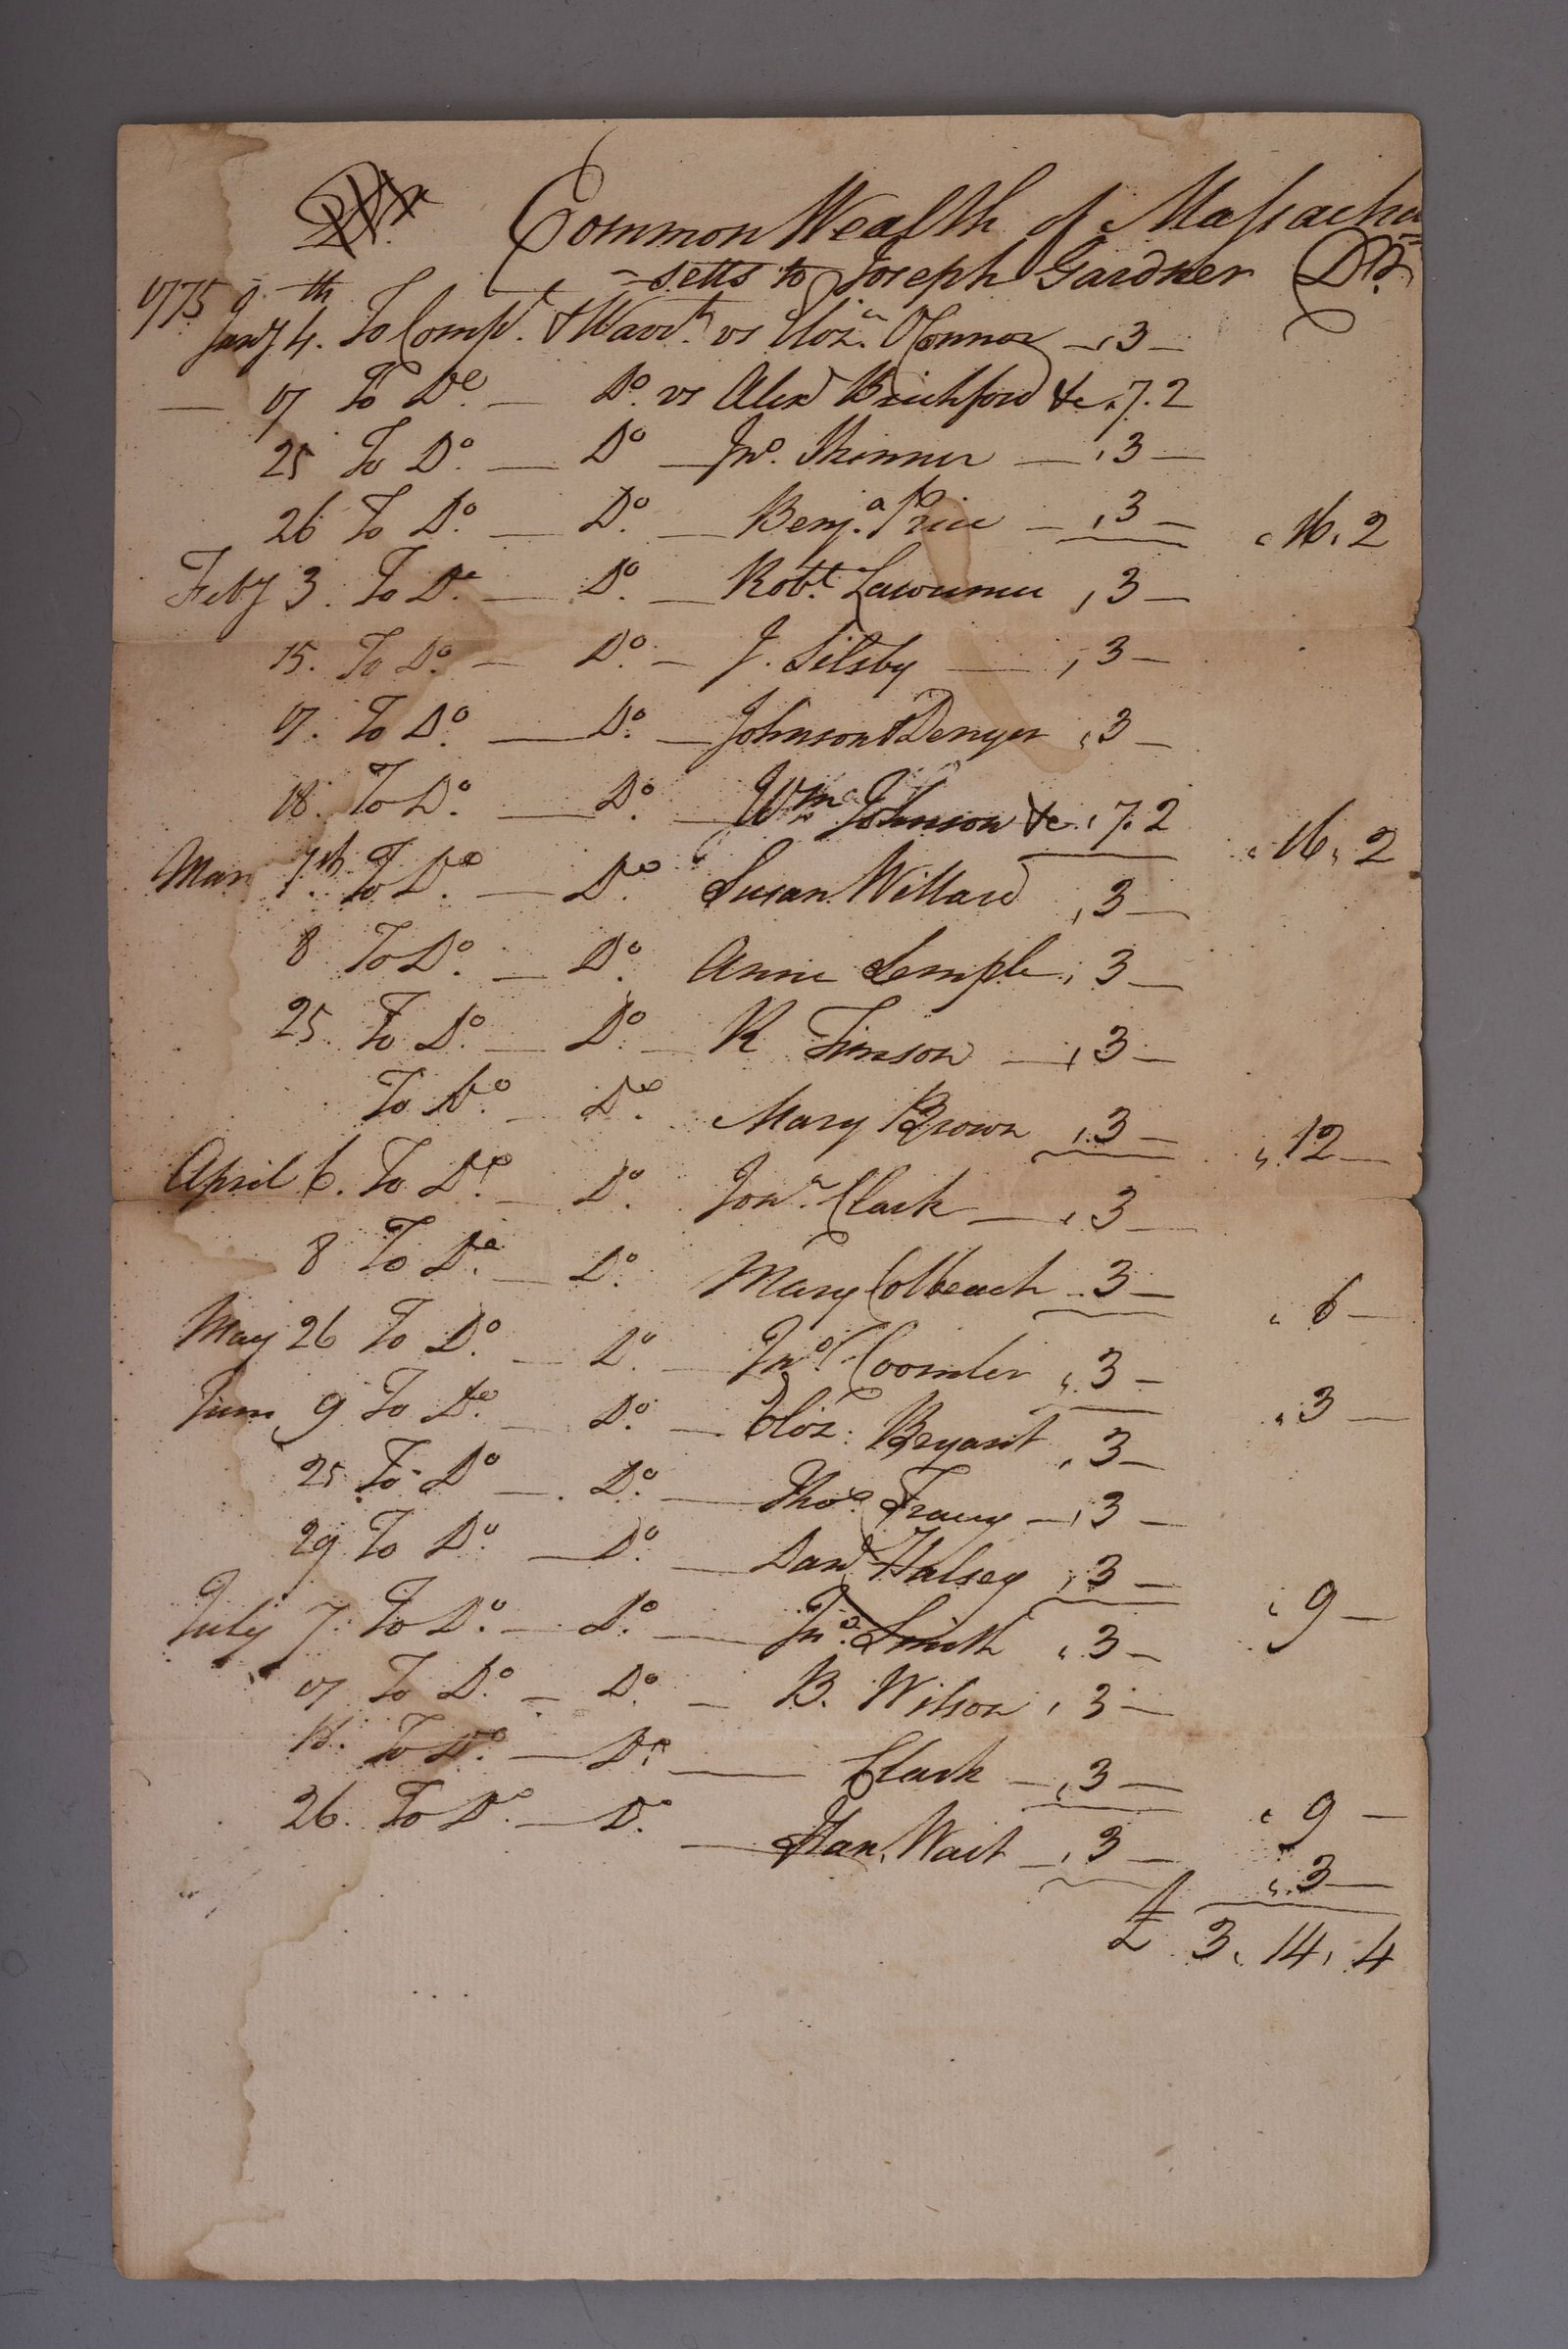 Dr. Common Wealth of Massachu=
=setts to Joseph Gardner Dr.
1775 Jany 4th. To Comp.t & Warr.t vs Eliz.a OConnor — ,3 —
— 17 To Do. — Do. vs Alexr &c ,7.2
25 To Do. — Do — Jno. Skinner — ,3 —
26 To Do. — Do. — Benj.a Price — ,3 — ,16,2
Feby 3. To Do. — Do. — Robt. Lawrence ,3 —
15. To Do. — Do. — J. Silsby — ,3 —
17. To Do. — Do. — Johnson & Denyer ,3 —
18. To Do. — Do. — Wm. Johnson &c. ,7.2 ,16,2
Mar 7th. To Do. — Do. Susan Willard ,3 —
8 To Do. — Do. Anne Semple ,3 —
25. To Do. — Do. — R Timson — ,3 —
To Do. — Do. Mary Brown ,3 — ,12 —
April 6. To Do. — Do. Jona. Clark — ,3 —
8 To Do. — Do. Mary Colbeach ,3 — ,6 —
May 26 To Do. — Do. — Jno. ,3 — ,3 —
June 9 To Do. — Do. — Eliz: Bryant ,3 —
25 To Do — Do. — Thos. Tracey — ,3 —
29 To Do. — Do. — Danl Halsey ,3 — ,9 —
July 7. To Do. — Do. — Jno. Smith ,3 —
17 To Do. — Do. — B. Wilson ,3 —
18. To Do. — Do. — Clark — ,3 — ,9 —
26. To Do. — Do. — Han. Wait — ,3 — ,3 —
£ 3,14,4